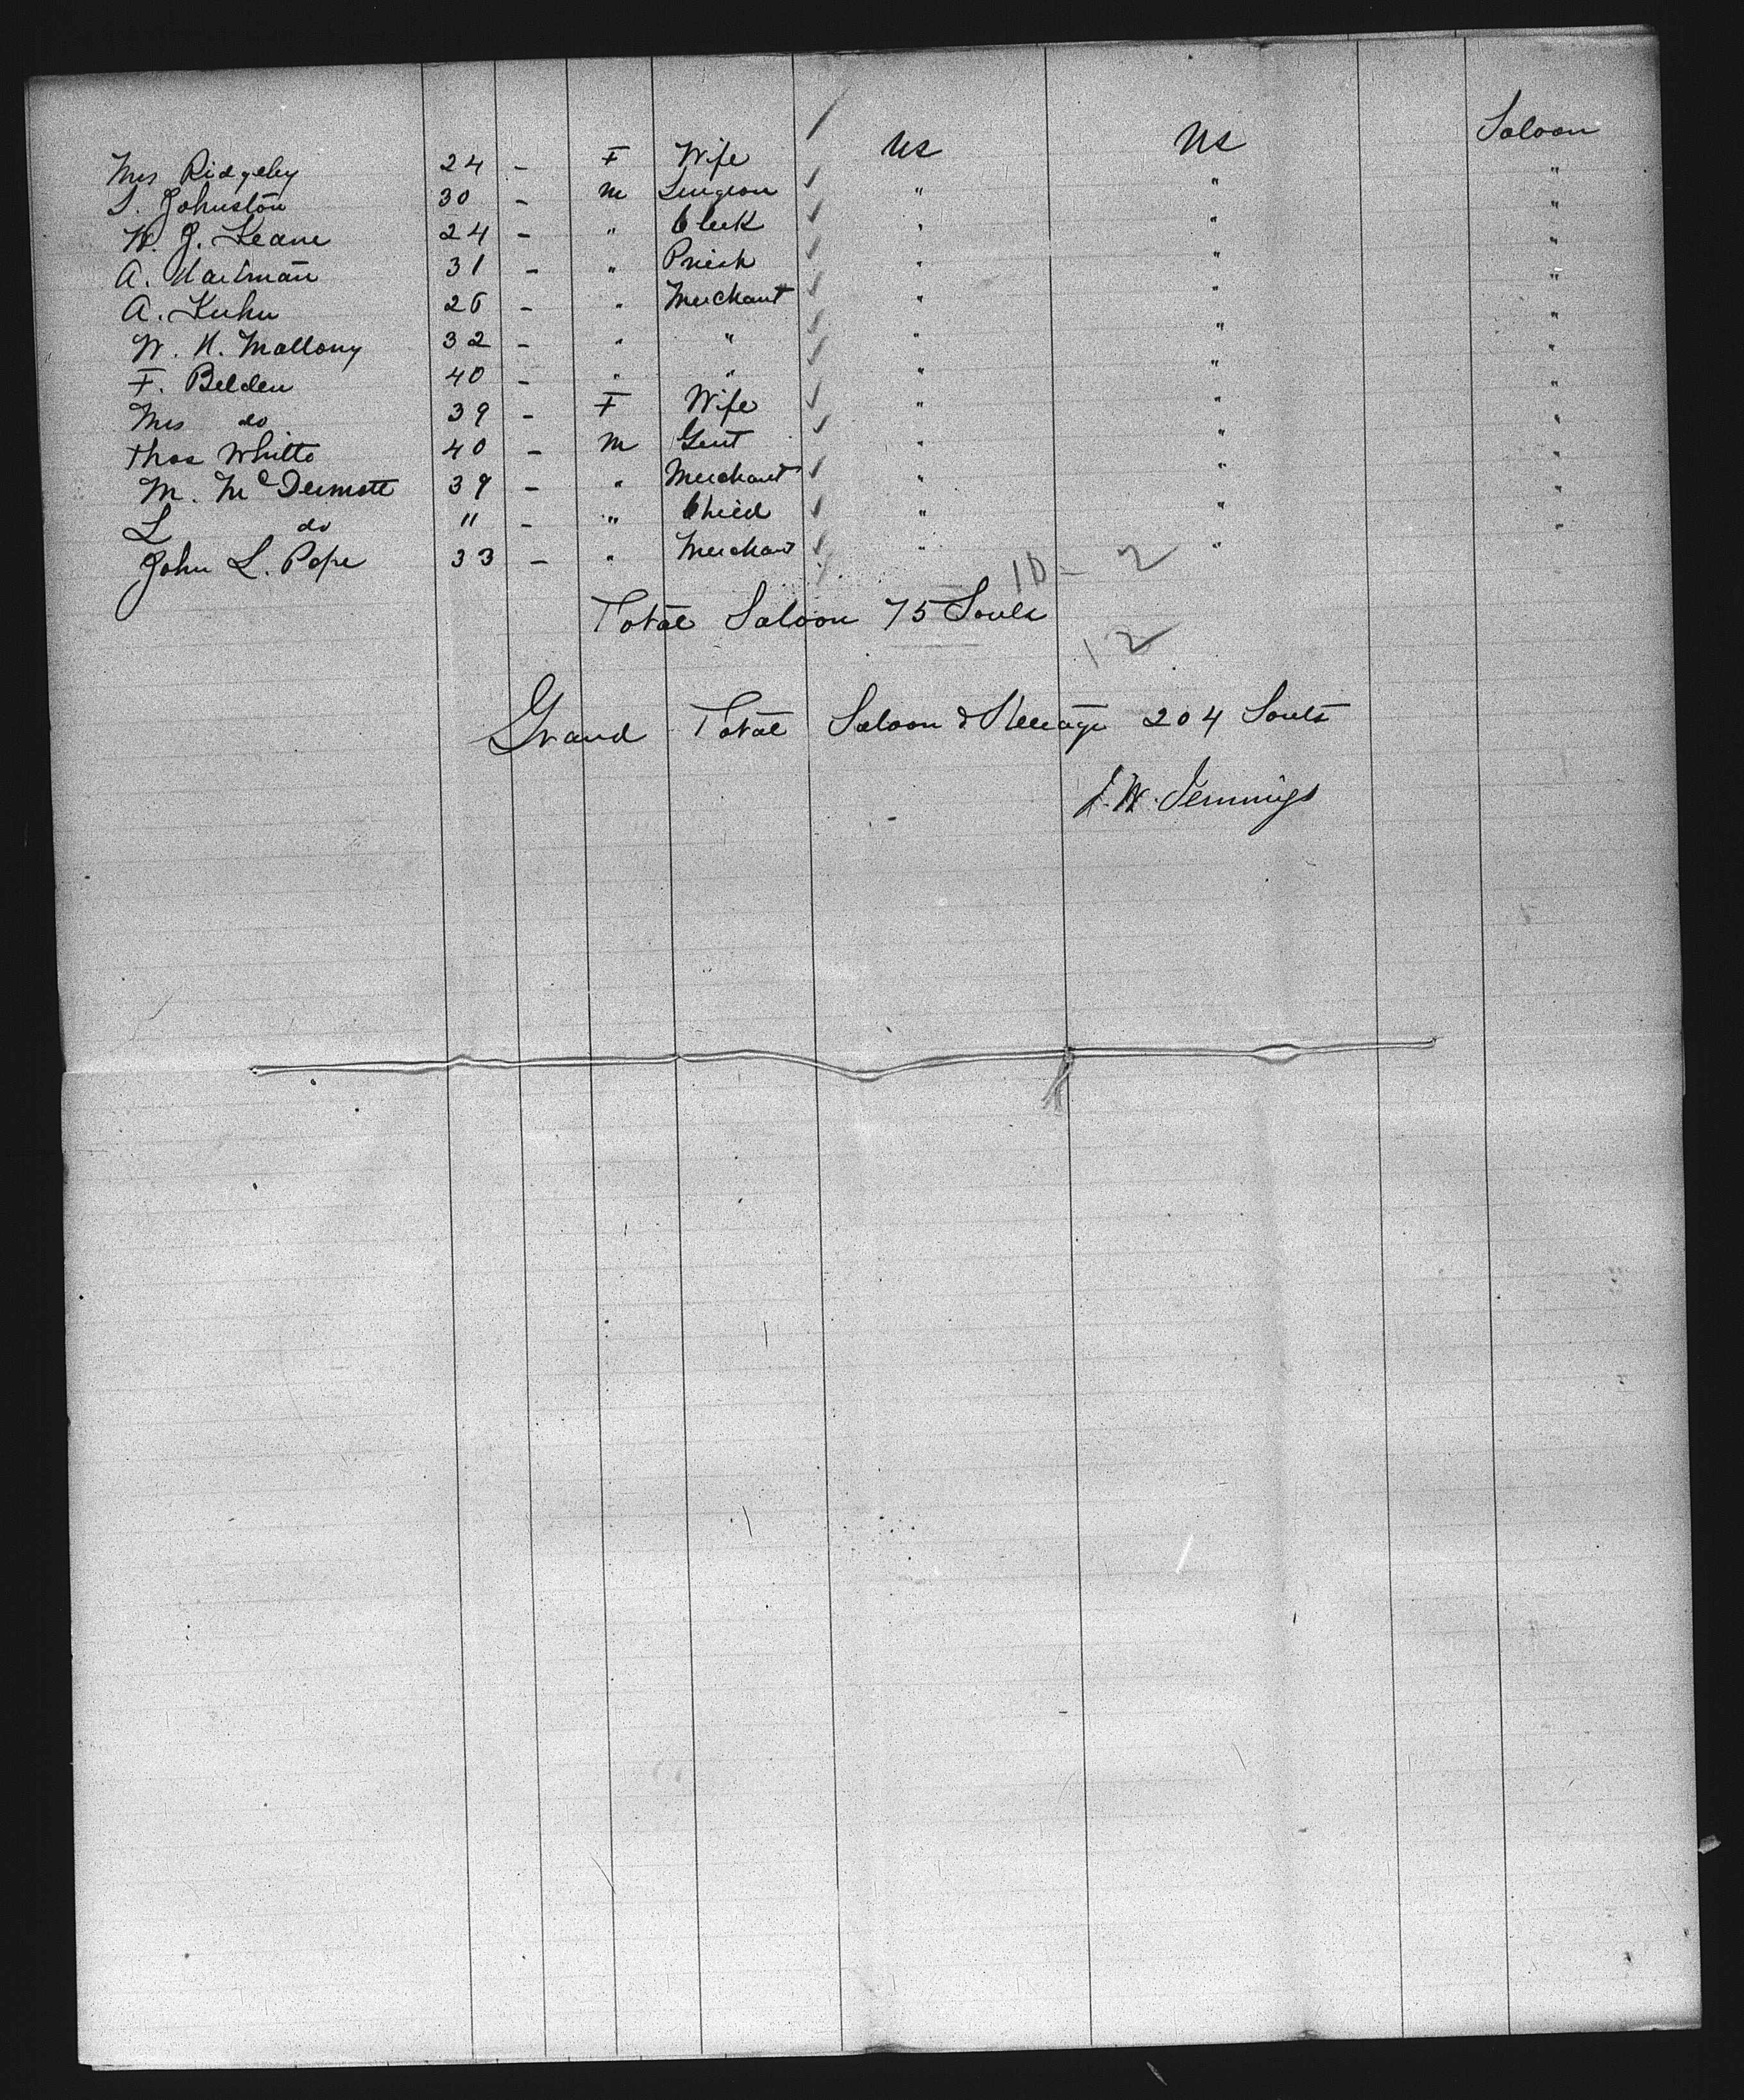 Mrs Ridgeley 24 - F Wife US US Saloon
S. Johnston 30 - M Surgeon " " "
W. J. Keane 24 - " Clerk " " "
A. Hartman 31 - " Priest " " "
A. Kuhn 26 - " Merchant " " "
W. H. Mallony 32 - " " " " "
F. Belden 40 - " " " " "
Mrs do 39 - F Wife " " "
Thos Whitto 40 - M Gent " " "
M. McDermott 39 - " Merchant " " "
L do 11 - " Child " " "
John L. Pope 33 - " Merchant " " "
10 - 2
Total Saloon 75 Souls
12
Grand Total Saloon & Steerage 204 Souls
J. W. Jennings